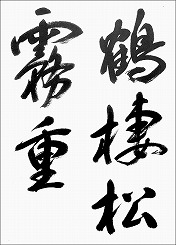 鶴棲松
霧重